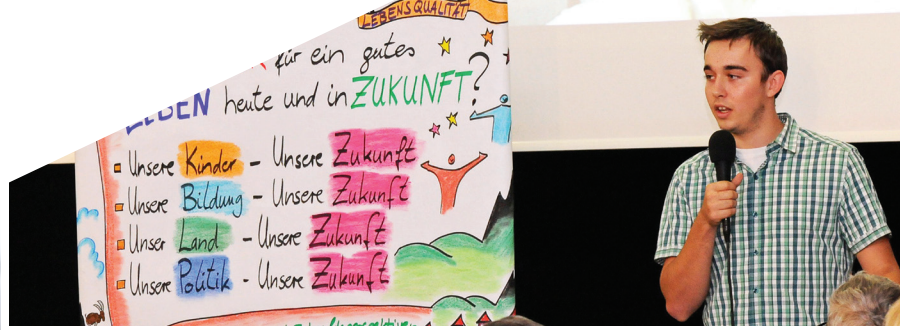 LEBENSQUALITÄT
für ein gutes
LEBEN heute und in ZUKUNFT?
Unsere Kinder - Unsere Zukunft
Unsere Bildung - Unsere Zukunft
Unser Land - Unsere Zukunft
Unsere Politik - Unsere Zukunft